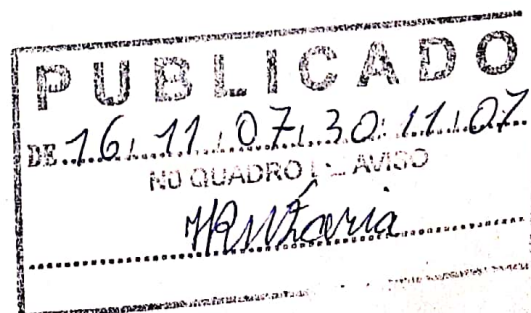 PUBLICADO
DE 16, 11, 07, 30, 11, 07
NO QUADRO DE AVISO